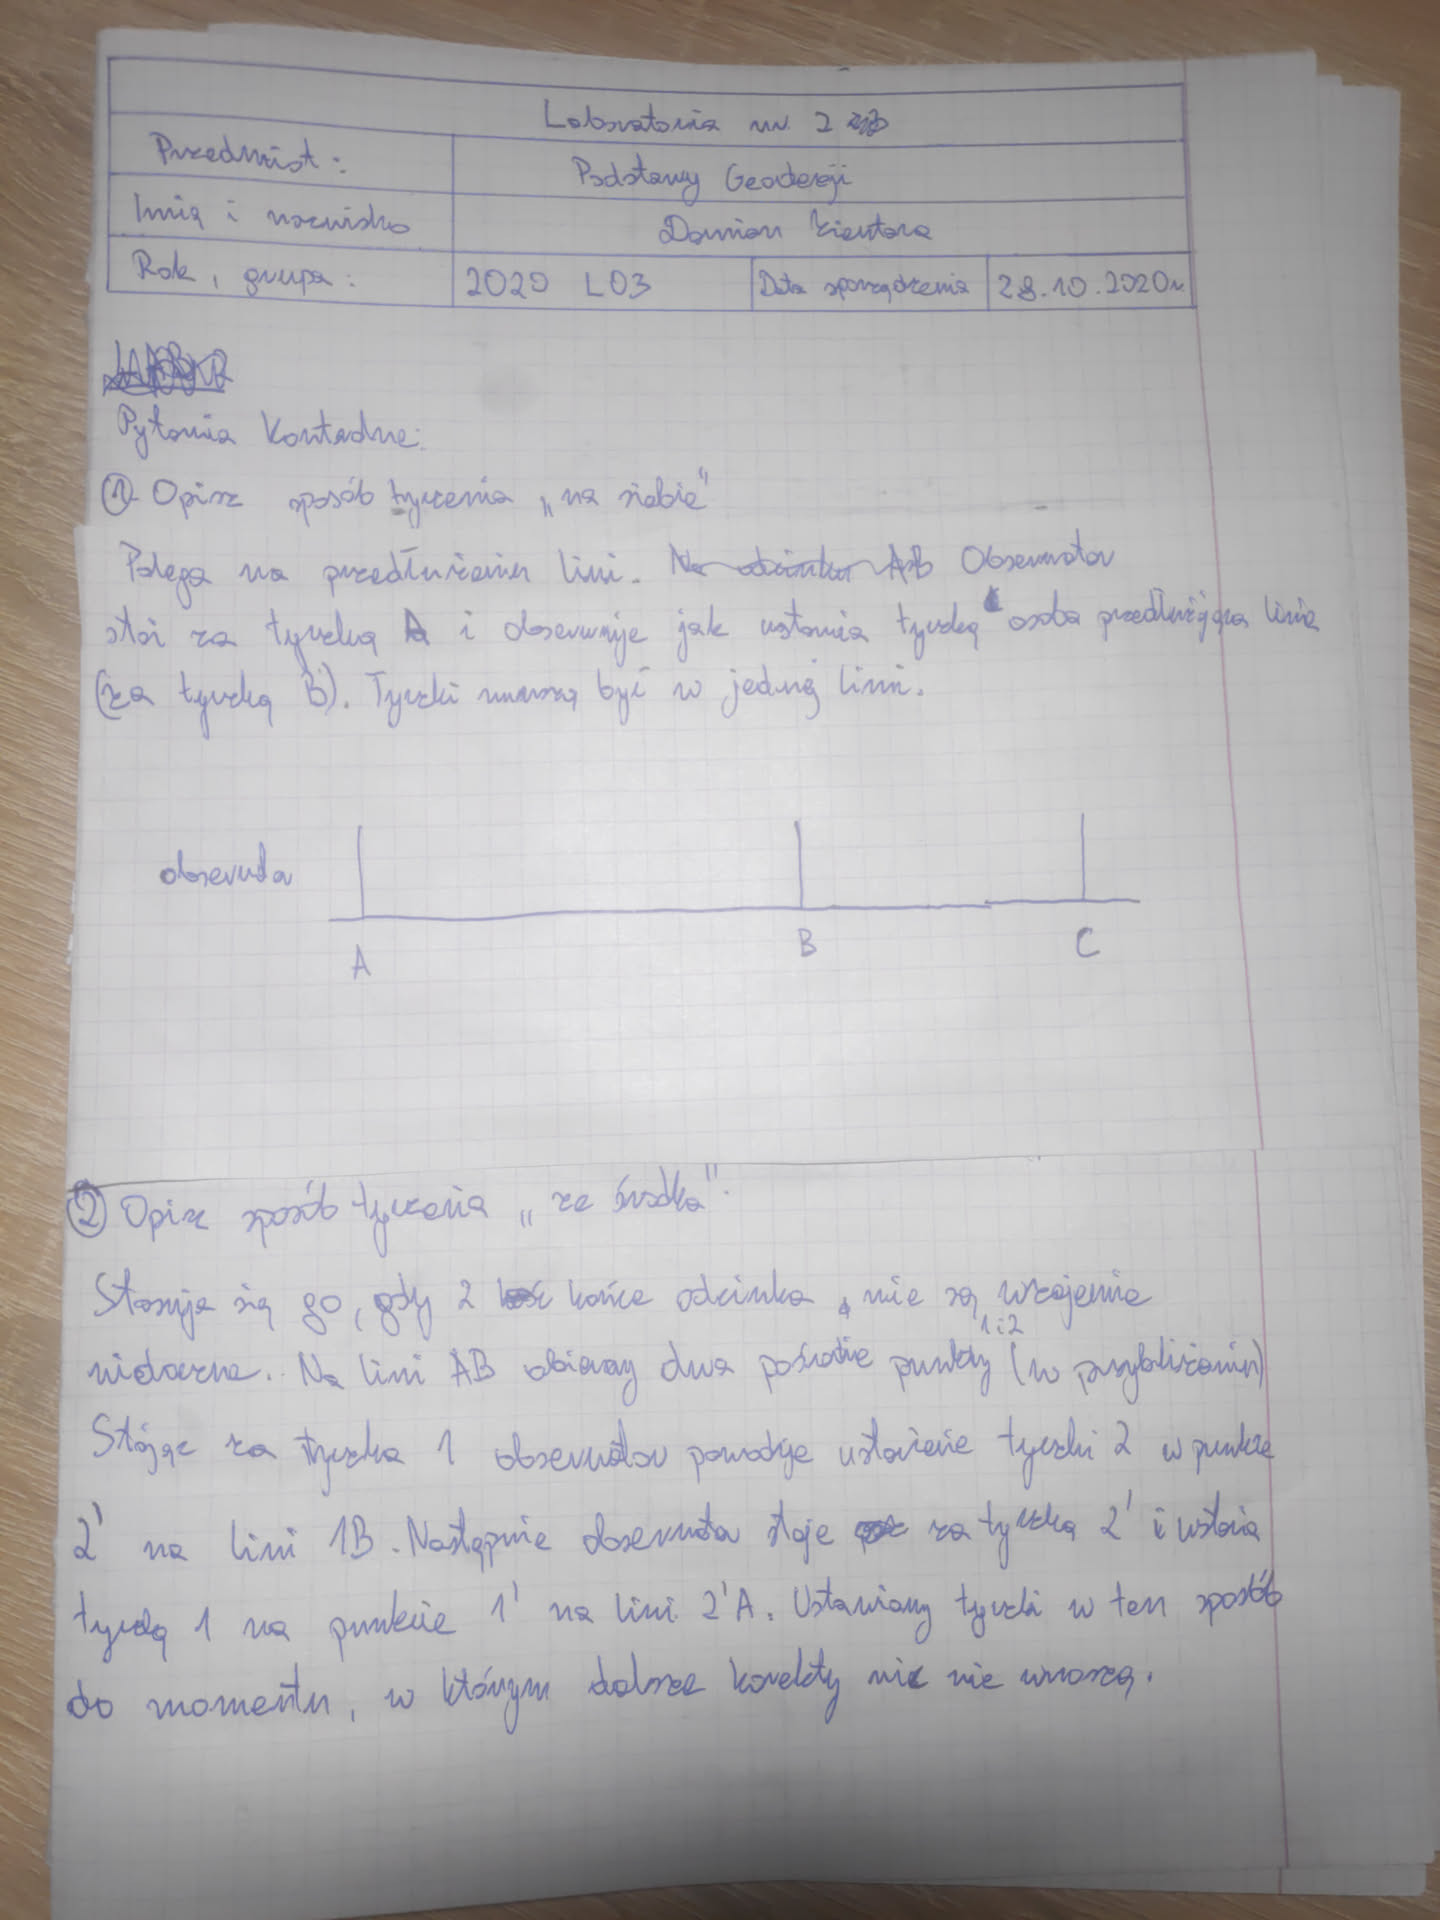 Laboratoria nr. 2
Przedmiot:
Podstawy Geodezji
Imię i nazwisko
Damian
Rok, grupa:
2020 L03
Data sporządzenia
28.10.2020r.
Pytania Kontrolne:
① Opisz sposób tyczenia „na siebie"
Polega na przedłużeniu lini. Na odcinku AB Obserwator
stoi za tyczką A i obserwuje jak ustawia tyczkę osoba przedłużająca linie
(za tyczką B). Tyczki muszą być w jednej linii.
obserwator
A
B
C
② Opisz sposób tyczenia „ze środka".
Stosuje się go, gdy 2 końce odcinka nie są wzajemnie
widoczne. Na lini AB obieramy dwa pośrednie punkty 1 i 2 (w przybliżeniu)
Stojąc za tyczka 1 obserwator powoduje ustawienie tyczki 2 w punkcie
2' na lini 1B. Następnie obserwator staje za tyczką 2' i ustawia
tyczkę 1 na punkcie 1' na lini 2'A. Ustawiamy tyczki w ten sposób
do momentu, w którym dalsze korekty nic nie wnoszą.